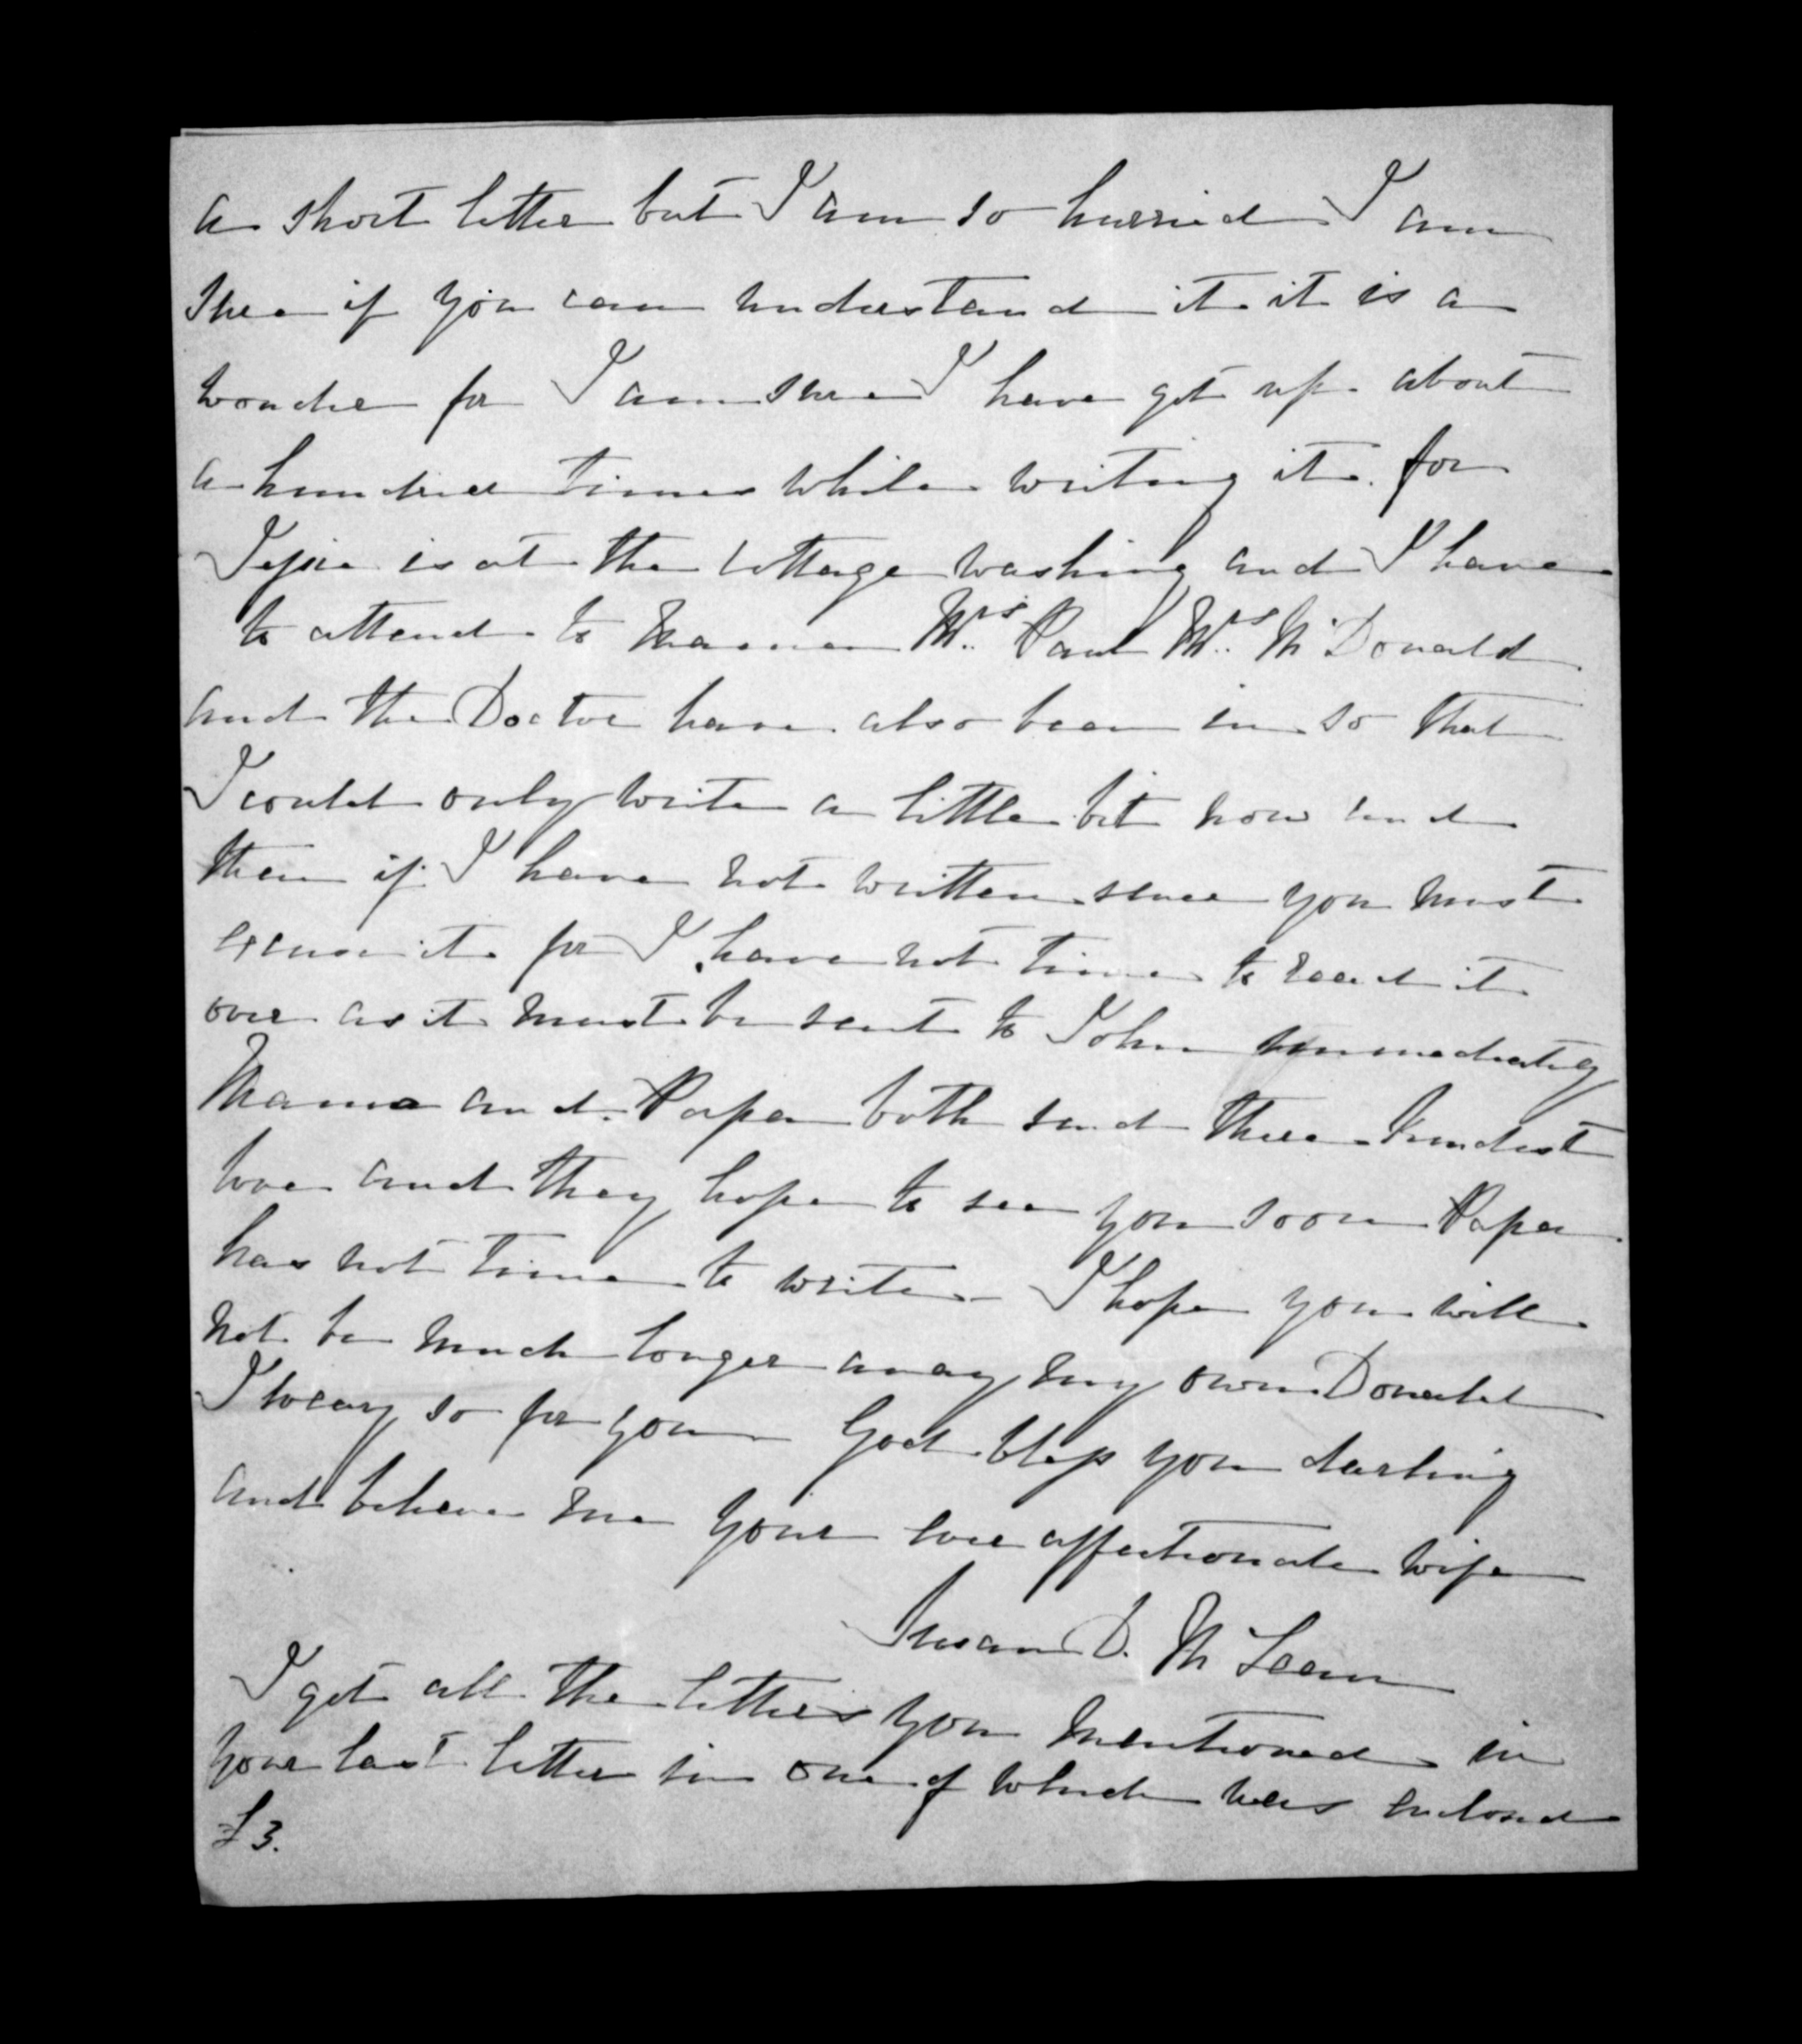 a short letter but I am so hurried I am
sure if you can understand it it is a
wonder for I am sure I have got up about
a hundred times while writing it. for
Jessie is at the cottage washing and I have
to attend to Mama Mrs Paul Mrs McDonald
and the Doctor have also been in so that
I could only write a little bit now and
then if I have not written sence you must
excuse it for I have not time to read it
over as it must be sent to John immediatly
Mama and Papa both send there kindest
love and they hope to see you soon Papa
has not time to write. I hope you will
not be much longer away my own Donald
I weary so for you God bless you darling
and believe me your ever affectionate wife
Susan D. McLean
I got all the letters you mentioned in
your last letter in one of which was enclosed
£3.